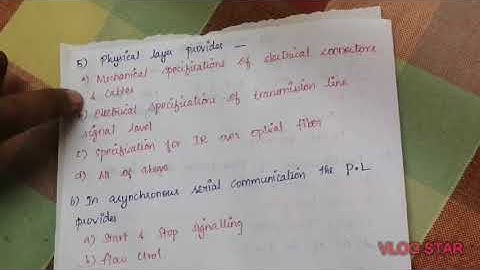 5) Physical layer provides —
a) Mechanical specifications of electrical connectors
& cables
b) Electrical specifications of transmission line
signal level
c) Specification for IR over optical fiber
d) All of above
6) In asynchronous serial communication the P.L
provides
a) Start & Stop signalling
b) flow ctrl.
VLOG STAR